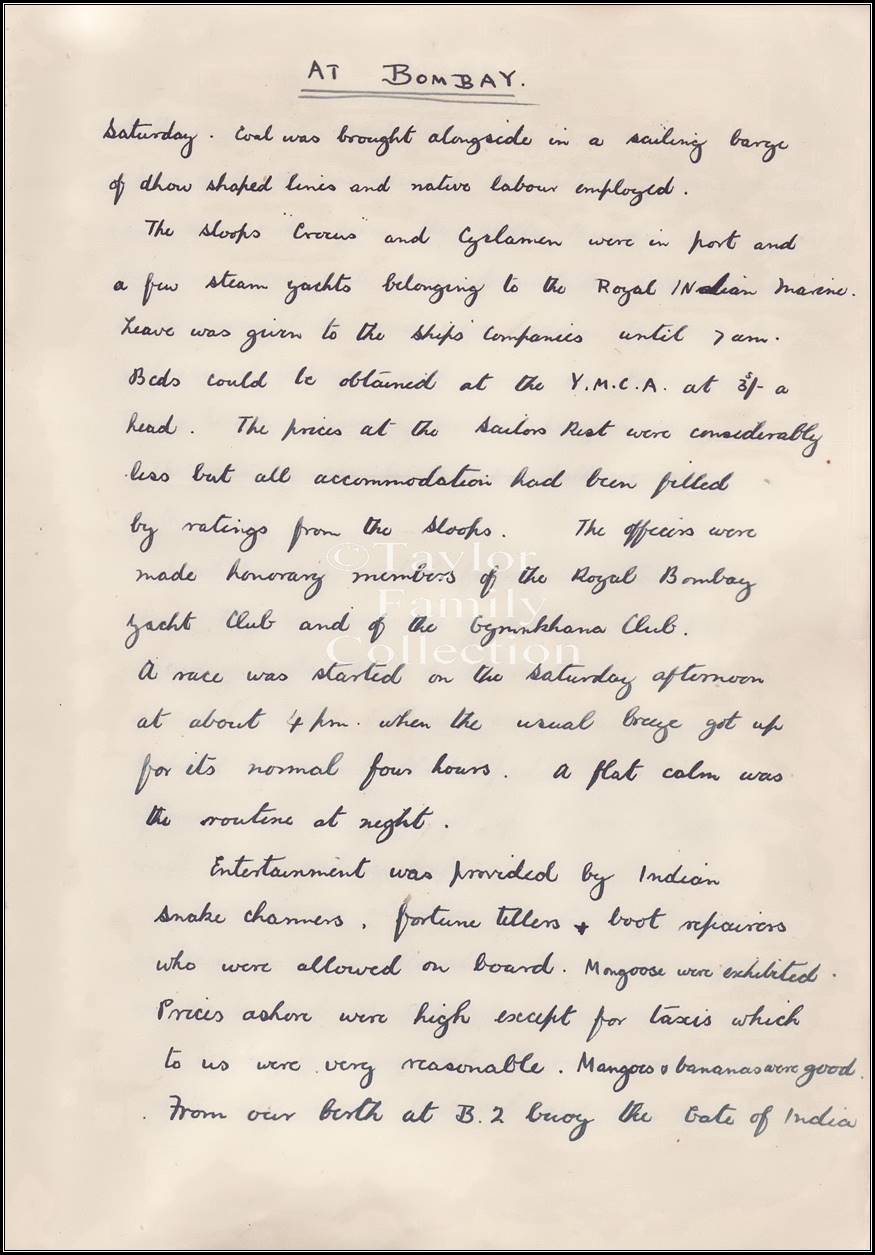 AT BOMBAY.
Saturday. Coal was brought alongside in a sailing barge
of dhow shaped lines and native labour employed.
The sloops "Crocus" and Cyclamen were in port and
a few steam yachts belonging to the Royal INdian Marine.
Leave was given to the ships companies until 7 am.
Beds could be obtained at the Y.M.C.A. at /- a
head. The prices at the Sailors Rest were considerably
less but all accommodation had been filled
by ratings from the sloops. The officers were
made honorary members of the Royal Bombay
Yacht Club and of the Gymnkhana Club.
A race was started on the Saturday afternoon
at about 4 pm. when the usual breeze got up
for its normal four hours. A flat calm was
the routine at night.
Entertainment was provided by Indian
snake charmers, fortune tellers + boot repairers
who were allowed on board. Mongoose were exhibited.
Prices ashore were high except for taxis which
to us were very reasonable. Mangoes & bananas were good.
From our berth at B.2 buoy the Gate of India
©Taylor
Family
Collection